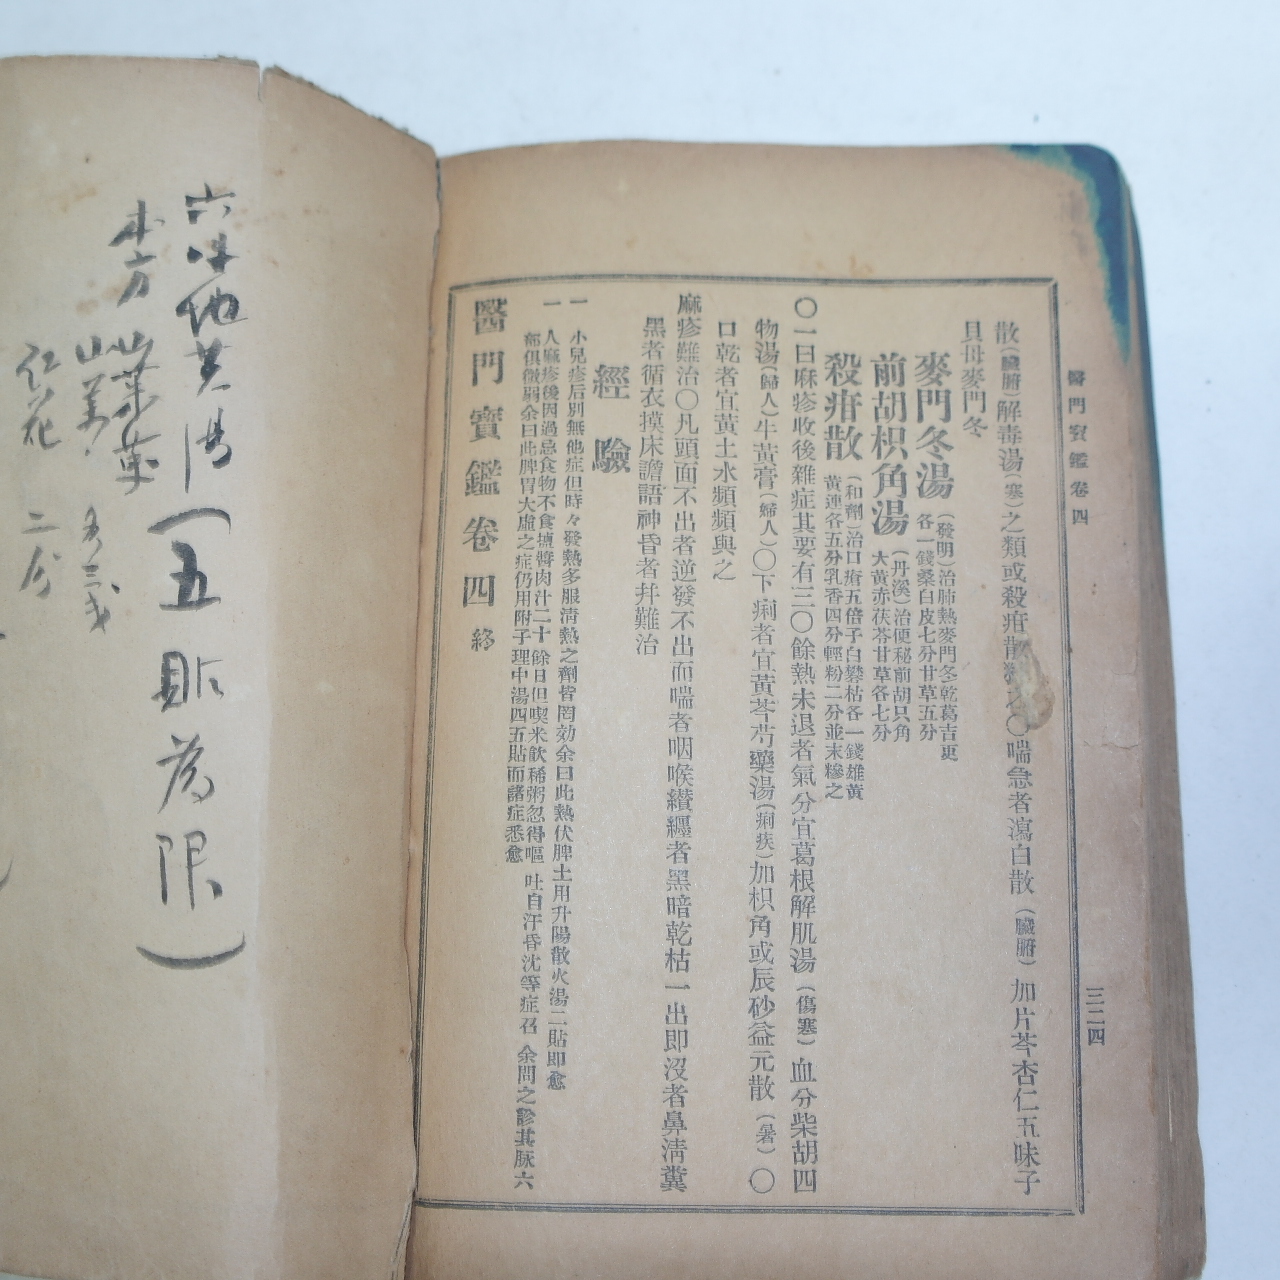 醫門寶鑑卷四
三二四
散(臟腑)解毒湯(寒)之類或殺疳散 〇喘急者瀉白散(臟腑)加片芩杏仁五味子
貝母麥門冬
麥門冬湯(發明)治肺熱麥門冬乾葛吉更各一錢桑白皮七分甘草五分
前胡枳角湯(丹溪)治便秘前胡只角大黃赤茯苓甘草各七分
殺疳散(和劑)治口瘡五倍子白礬枯各一錢雄黃黃連各五分乳香四分輕粉二分並末糝之
〇一曰麻疹收後雜症其要有三〇餘熱未退者氣分宜葛根解肌湯(傷寒)血分柴胡四
物湯(婦人)牛黃膏(婦人)〇下痢者宜黃芩芍藥湯(痢疾)加枳角或辰砂益元散(暑)〇
口乾者宜黃土水頻頻與之
麻疹難治〇凡頭面不出者逆發不出而喘者咽喉纘纏者黑暗乾枯一出即沒者鼻淸糞
黑者循衣摸床譫語神昏者幷難治
經驗
一 小兒疹后別無他症但時々發熱多服淸熱之劑皆罔効余曰此熱伏脾土用升陽散火湯二貼即愈
一 人麻疹後因過忌食物不食塩醬肉汁二十餘日但喫米飮稀粥忽得嘔吐自汗昏沈等症召余問之診其脉六
部俱微弱余曰此脾胃大虛之症仍用附子理中湯四五貼而諸症悉愈
醫門寶鑑卷四 終
六味地黃湯(五貼爲限)
本方山茱萸
山藥
二分